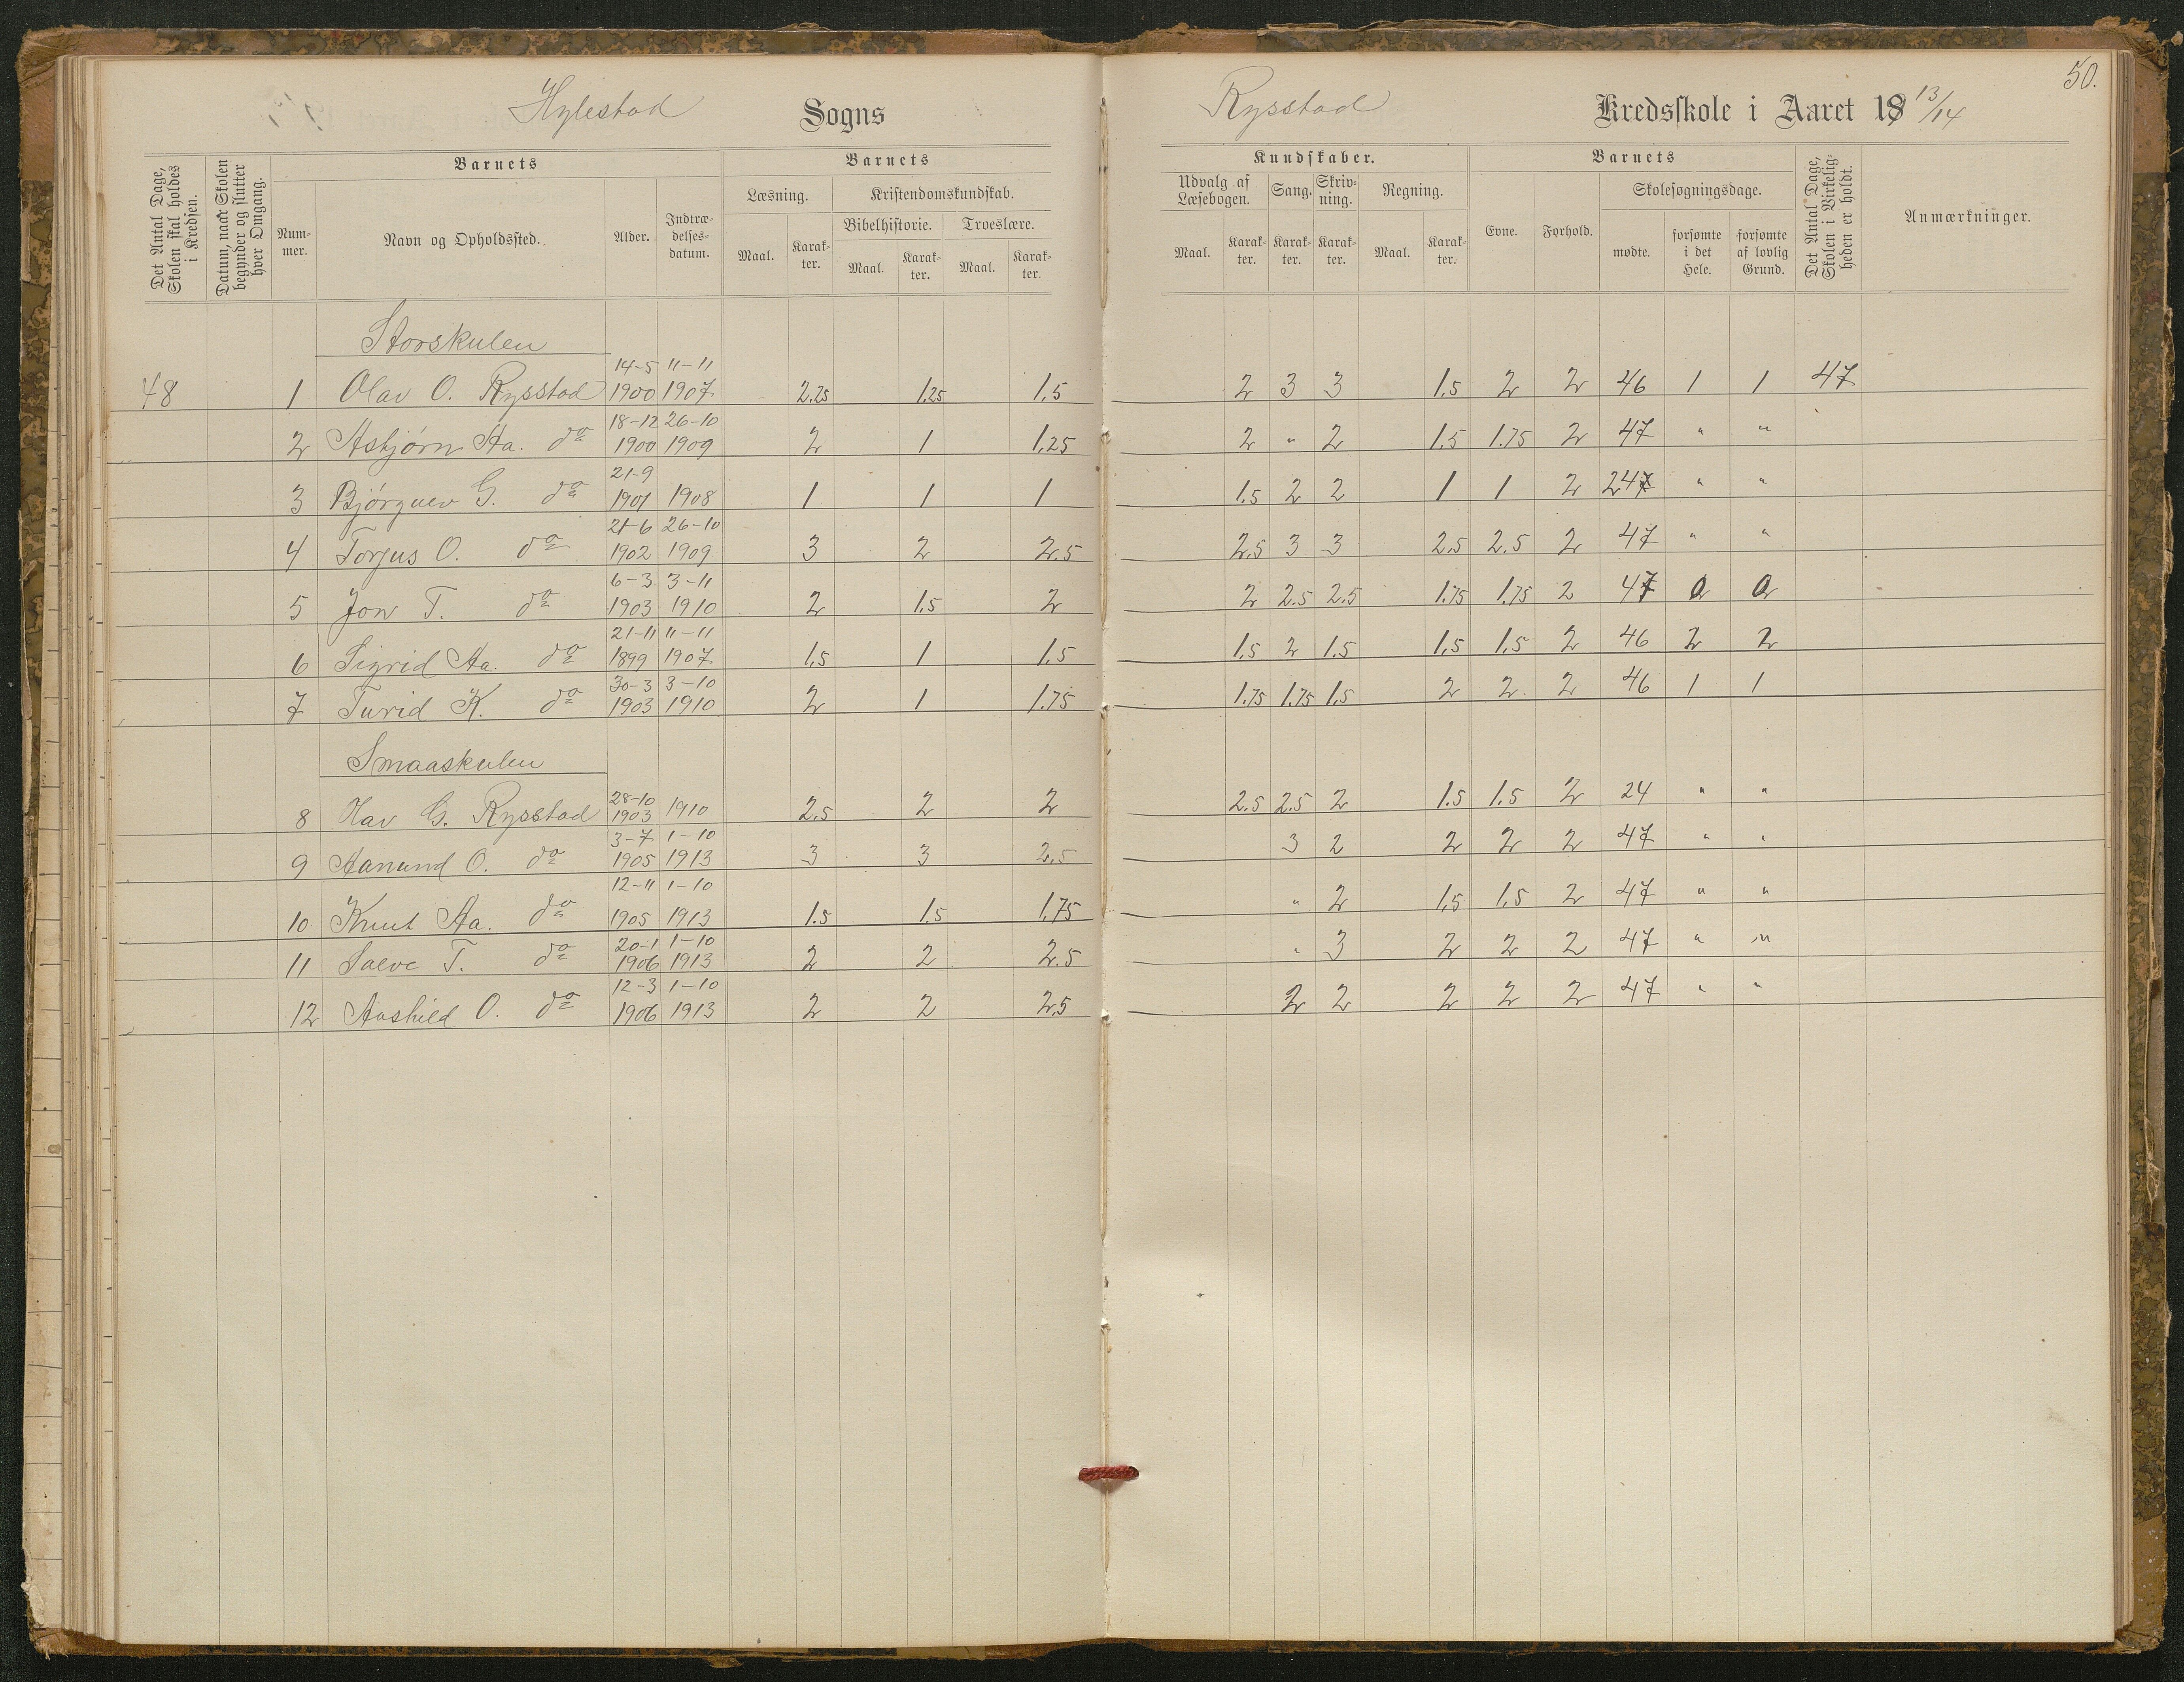 50.
Hylestad Sogns Rysstad Kredsskole i Aaret 19 13/14
Det Antal Dage, Skolen skal holdes i Kredsen.
Datum, naar Skolen begynder og slutter hver Omgang.
Barnets
Nummer.
Navn og Opholdssted.
Alder.
Indtrædelsesdatum.
Barnets
Læsning.
Maal.
Karakter.
Kristendomskundskab.
Bibelhistorie.
Maal.
Karakter.
Troeslære.
Maal.
Karakter.
Kundskaber.
Udvalg af Læsebogen.
Maal.
Karakter.
Sang.
Karakter.
Skrivning.
Karakter.
Regning.
Maal.
Karakter.
Barnets
Evne.
Forhold.
Skolesøgningsdage.
mødte.
forsømte i det Hele.
forsømte af lovlig Grund.
Det Antal Dage, Skolen i Virkeligheden er holdt.
Anmærkninger.
Storskulen
48 1 Olav O. Rysstad 14-5 1900 11-11 1907 2.25 1.25 1.5 2 3 3 1.5 2 2 46 1 1 47
2 Asbjørn Aa. do 18-12 1900 26-10 1909 2 1 1.25 2 " 2 1.5 1.75 2 47 " "
3 Bjørguv G. do 21-9 1901 1908 1 1 1 1.5 2 2 1 1 2 247 " "
4 Torjus O. do 21-6 1902 26-10 1909 3 2 2.5 2.5 3 3 2.5 2.5 2 47 " "
5 Jon T. do 6-3 1903 3-11 1910 2 1.5 2 2 2.5 2.5 1.75 1.75 2 47 0 0
6 Sigrid Aa. do 21-11 1899 11-11 1907 1.5 1 1.5 1.5 2 1.5 1.5 1.5 2 46 2 2
7 Turid K. do 30-3 1903 3-10 1910 2 1 1.75 1.75 1.75 1.5 2 2 2 46 1 1
Smaaskulen
8 Olav G. Rysstad 28-10 1903 1910 2.5 2 2 2.5 2.5 2 1.5 1.5 2 24 " "
9 Aanund O. do 3-7 1905 1-10 1913 3 3 2.5 3 2 2 2 2 47 " "
10 Knut Aa. do 12-11 1905 1-10 1913 1.5 1.5 1.75 " 2 1.5 1.5 2 47 " "
11 Salve T. do 20-1 1906 1-10 1913 2 2 2.5 " 3 2 2 2 47 " "
12 Aashild O. do 12-3 1906 1-10 1913 2 2 2.5 2 2 2 2 2 47 " "